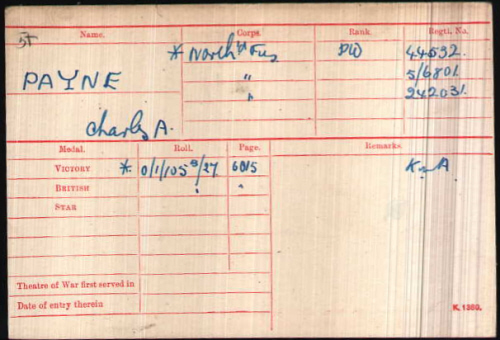 5T
Name. Corps. Rank. Regtl. No.
* North'd Fus Pte 44592.
PAYNE " 5/6801
" 242031.
Charles A.
Medal. Roll. Page. Remarks.
VICTORY * O/1/105 B/27 6015 K. in A
BRITISH " "
STAR
Theatre of War first served in
Date of entry therein
K. 1380.